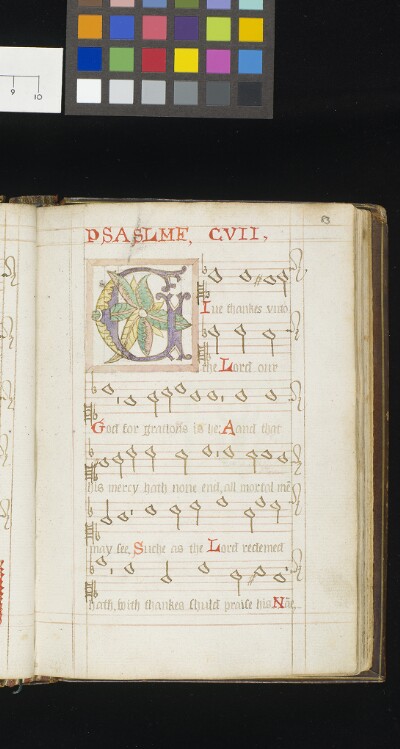 9 10
83
PSASLME, CVII,
GIue thankes vnto
the Lord our
God for gratious is he: Aand that
his mercy hath none end, all mortal mē
may see, Suche as the Lord redemed
hath, with thankes shuld praise his Nāe,